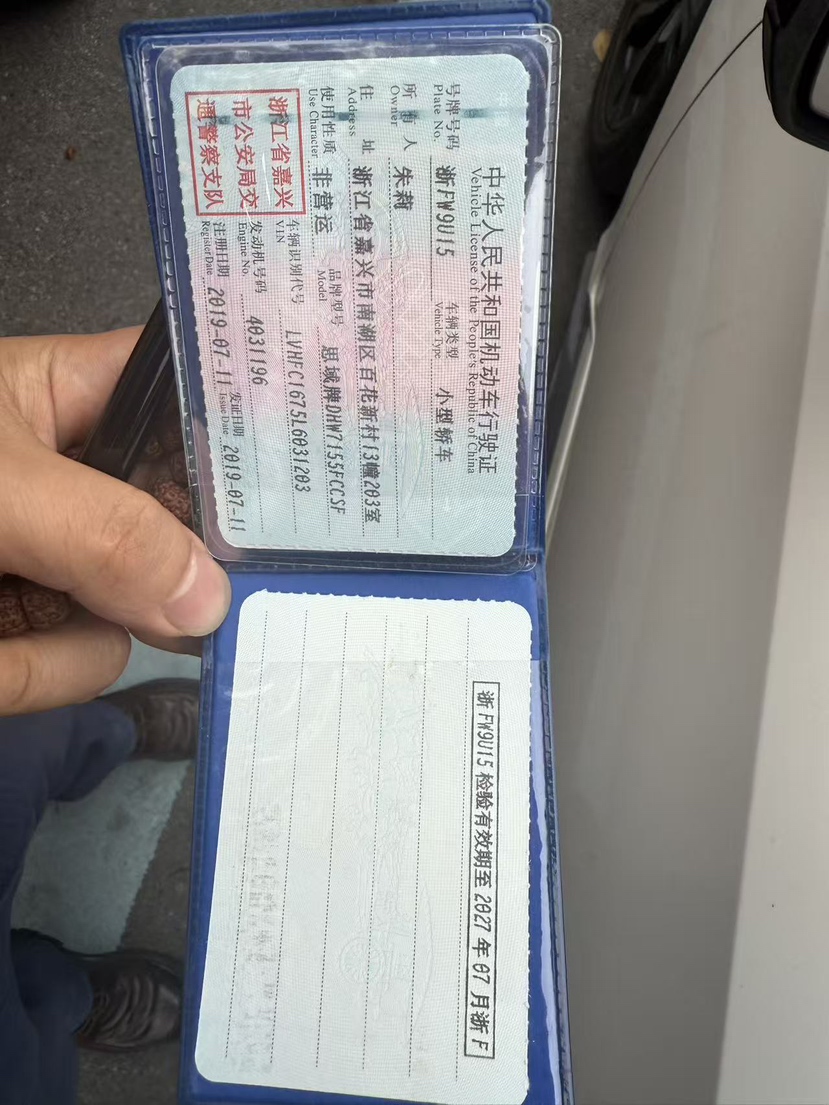 中华人民共和国机动车行驶证
Vehicle License of the People's Republic of China
号牌号码 浙FW9U15 车辆类型 小型轿车
Plate No. Vehicle Type
所有人 朱莉
Owner
住址 浙江省嘉兴市南湖区百花新村13幢203室
Address
使用性质 非营运 品牌型号 思域牌DHW7155FCCSF
Use Character Model
浙江省嘉兴
市公安局交
通警察支队
车辆识别代号 LVHFC1675L6031203
VIN
发动机号码 4031196
Engine No.
注册日期 2019-07-11 发证日期 2019-07-11
Register Date Issue Date
浙FW9U15检验有效期至2027年07月浙F